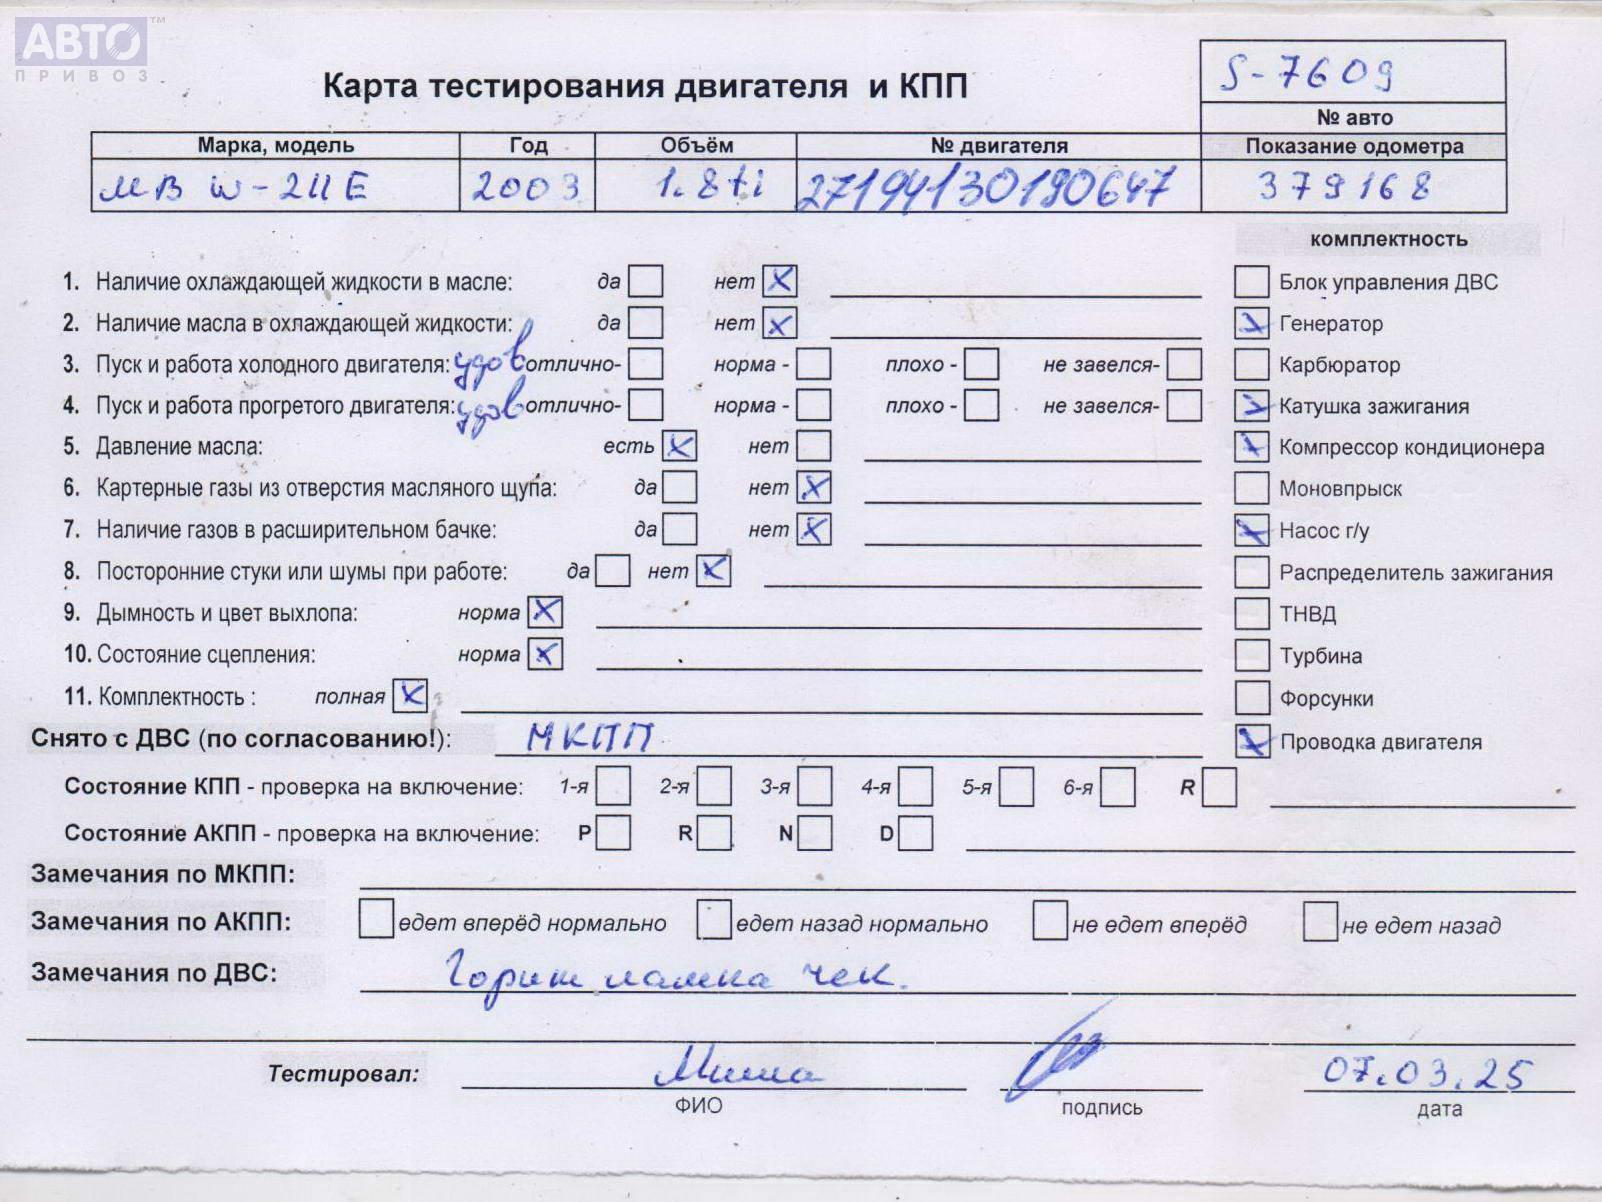 АВТО™
ПРИВОЗ
Карта тестирования двигателя и КПП
S-7609
№ авто
Марка, модель Год Объём № двигателя Показание одометра
МВ W-211 E 2003 1.8ti 27194130190647 379168
комплектность
1. Наличие охлаждающей жидкости в масле: да нет X Блок управления ДВС
2. Наличие масла в охлаждающей жидкости: да нет X X Генератор
3. Пуск и работа холодного двигателя: удов отлично- норма - плохо - не завелся- Карбюратор
4. Пуск и работа прогретого двигателя: удов отлично- норма - плохо - не завелся- X Катушка зажигания
5. Давление масла: есть X нет X Компрессор кондиционера
6. Картерные газы из отверстия масляного щупа: да нет X Моновпрыск
7. Наличие газов в расширительном бачке: да нет X X Насос г/у
8. Посторонние стуки или шумы при работе: да нет X Распределитель зажигания
9. Дымность и цвет выхлопа: норма X ТНВД
10. Состояние сцепления: норма X Турбина
11. Комплектность : полная X Форсунки
Снято с ДВС (по согласованию!): МКПП X Проводка двигателя
Состояние КПП - проверка на включение: 1-я 2-я 3-я 4-я 5-я 6-я R
Состояние АКПП - проверка на включение: P R N D
Замечания по МКПП:
Замечания по АКПП: едет вперёд нормально едет назад нормально не едет вперёд не едет назад
Замечания по ДВС: Горит лампа чек.
Тестировал: Миша 07.03.25
ФИО подпись дата